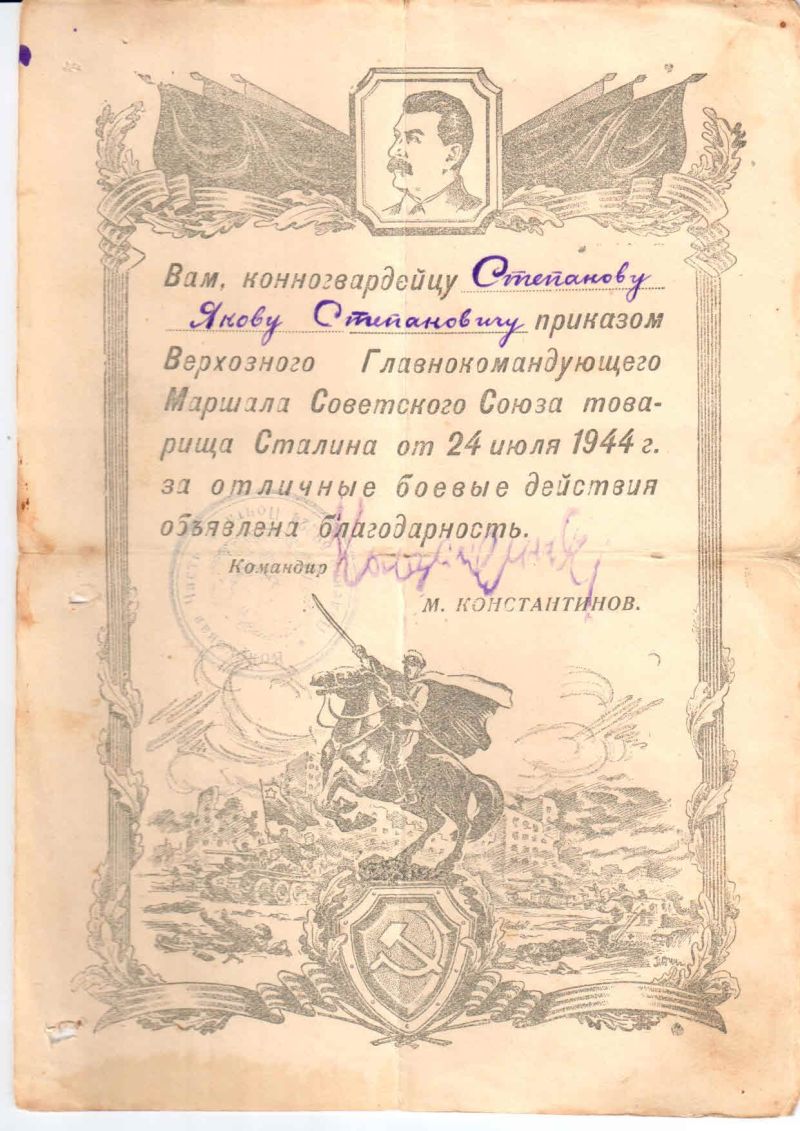 Вам, конногвардейцу Степанову
Якову Степановичу приказом
Верхозного Главнокомандующего
Маршала Советского Союза това-
рища Сталина от 24 июля 1944 г.
за отличные боевые действия
объявлена благодарность.
Командир
М. КОНСТАНТИНОВ.